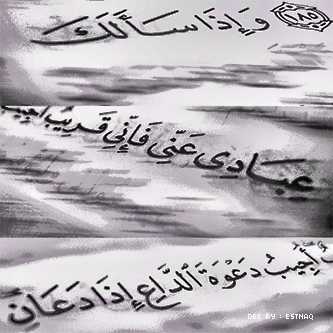 ١٨٥ وَإِذَا سَأَلَكَ
عِبَادِى عَنِّى فَإِنِّى قَرِيبٌ أُجِيبُ
أُجِيبُ دَعْوَةَ ٱلدَّاعِ إِذَا دَعَانِ
DES BY : ESTNAQ